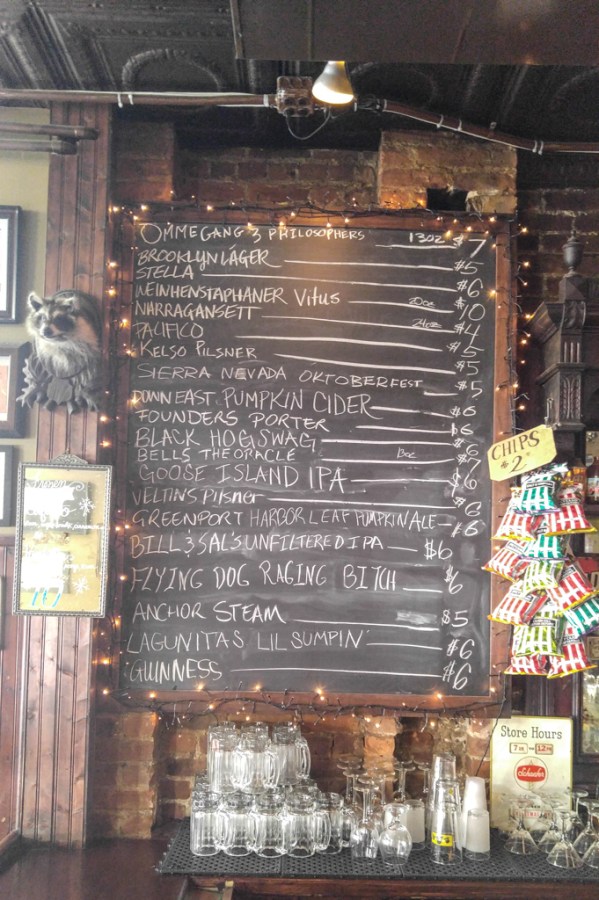 OMMEGANG 3 PHILOSOPHERS 13oz $7
BROOKLYN LAGER $5
STELLA $6
WEINHENSTAPHANER Vitus 20oz $10
NARRAGANSETT 24oz $4
PACIFICO $5
KELSO PILSNER $5
SIERRA NEVADA OKTOBERFEST $5
DOWN EAST PUMPKIN CIDER $6
FOUNDERS PORTER $6
BLACK HOG SWAG $6
BELLS THE ORACLE 13oz $7
GOOSE ISLAND IPA $6
VELTINS Pilsner $6
GREENPORT HARBOR LEAF PUMPKIN ALE $6
BILL & SAL'S UNFILTERED IPA $6
FLYING DOG RAGING BITCH $6
ANCHOR STEAM $5
LAGUNITAS LIL SUMPIN' $6
GUINNESS $6
CHIPS
$2
Store Hours
7 AM to 12 PM
Schaefer